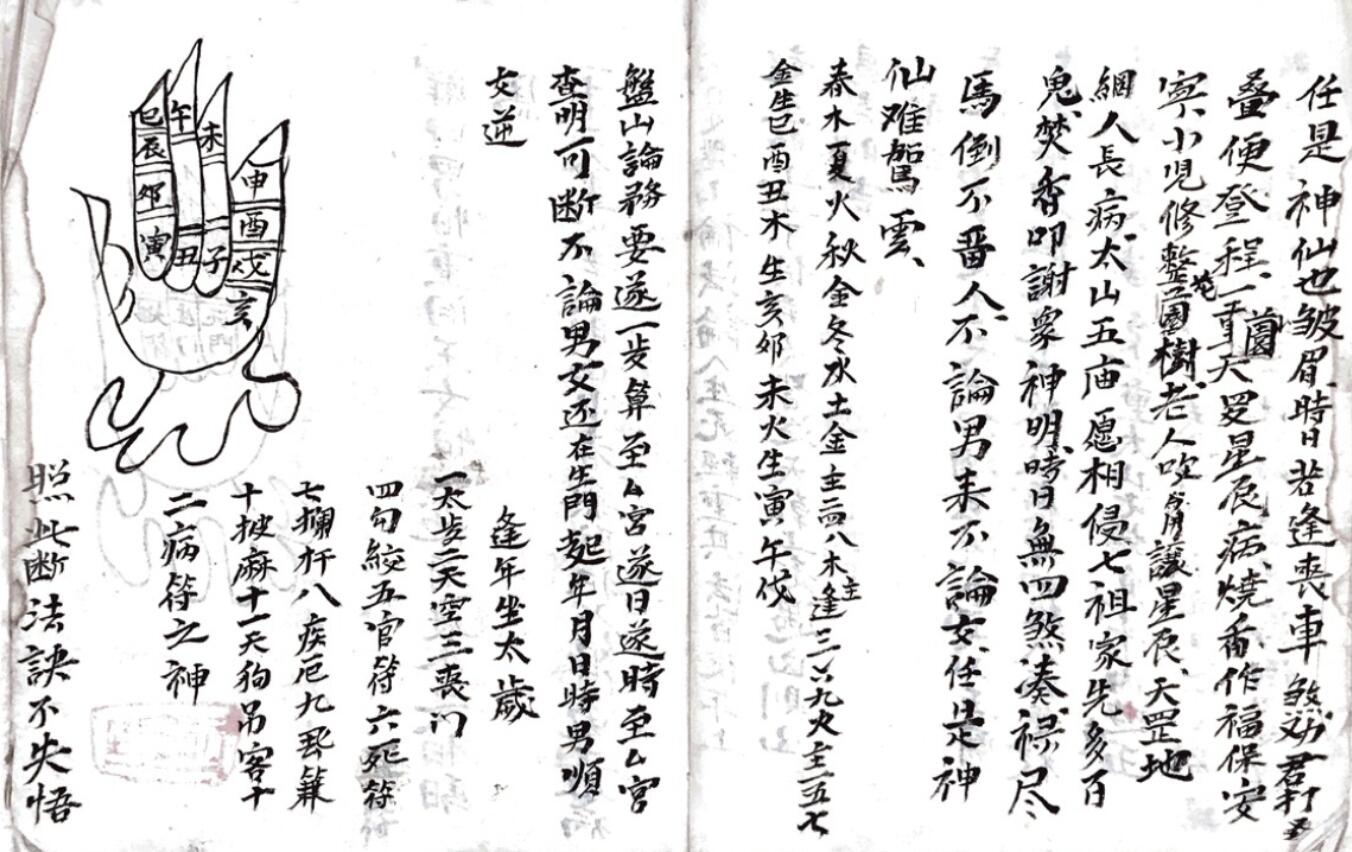 任是神仙也皱眉時日若逢喪車煞劝君打
叠便登程一重天罡星辰病燒香作福保安
寧小児修整园樹老人吹 讓星辰天罡地
綱人長病太山五庙愿相侵七祖家先多百
鬼焚香叩謝衆神明時日無四煞凑禄尽
馬倒不畱人不論男来不論女任是神
仙难駕雲
春木夏火秋金冬水土金主二四八木主逢三六九火主一五七
金生巳酉丑木生亥夘未火生寅午戌
盤山論務要遂一步算至厶宮遂日遂時至厶宮
查明可断不論男女还在生門起年月日時男順
女逆
逢年坐太歲
一太步二天空三喪门
四勾絞五官符六死符
七攔杆八疾厄九
十披麻十一天狗吊客十
二病符之神
照此断法訣不失悟
巳
午
未
辰
申
夘
酉
寅
丑
子
戌
亥